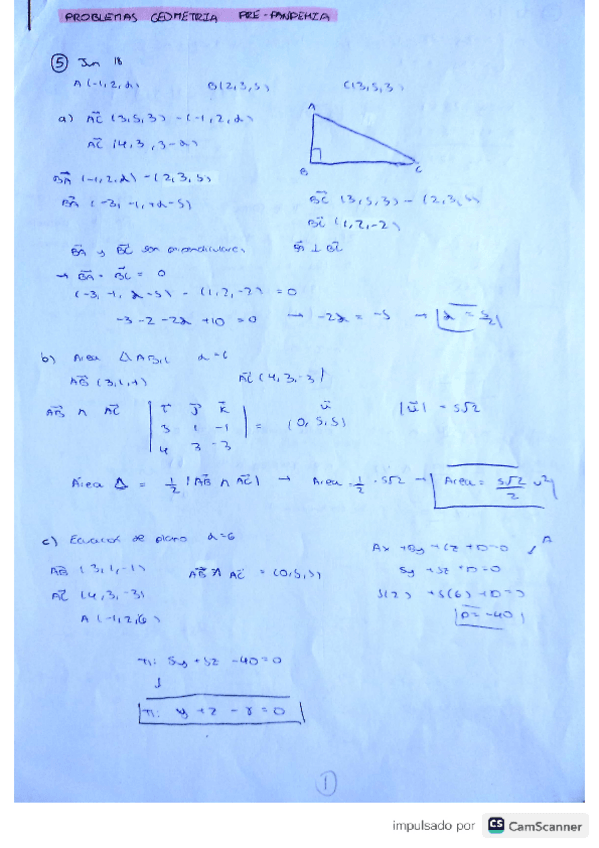 PROBLEMAS GEOMETRIA PRE-PANDEMIA
5 Jun 18
A(-1,2,α) B(2,3,5) C(3,5,3)
a) AC (3,5,3) - (-1,2,α)
AC (4,3,3-α)
A
B
C
BA (-1,2,α) - (2,3,5)
BA (-3,-1,+α-5)
BC (3,5,3) - (2,3,5)
BC (1,2,-2)
BA y BC son perpendiculares BA ⊥ BC
→ BA · BC = 0
(-3,-1,α-5) · (1,2,-2) = 0
-3-2-2α+10=0 → -2α = -5 → α = 5/2
b) Area Δ ABC α=6
AB (3,1,1) AC (4,3,-3)
AB ∧ AC | i j k | = (0,5,5) |u| = 5√2
3 1 -1
4 3 -3
u
Área Δ = 1/2 |AB ∧ AC| → Area = 1/2 · 5√2 → Area = 5√2/2 u²
c) Ecuación de plano α=6
AB (3,1,-1) AB ∧ AC = (0,5,5)
AC (4,3,-3)
A(-1,2,6)
Ax + By + Cz + D = 0 ↓ A
5y + 5z + D = 0
5(2) + 5(6) + D = 0
D = -40
π: 5y + 5z - 40 = 0
↓
π: y + z - 8 = 0
1
impulsado por CS CamScanner